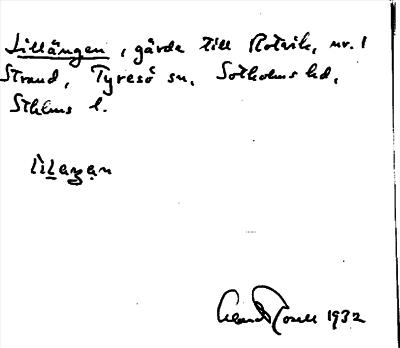 Lillängen, gärde till Rotvik, nr. 1
Strand, Tyresö sn, Sotholms hd,
Sthlms l.
1932